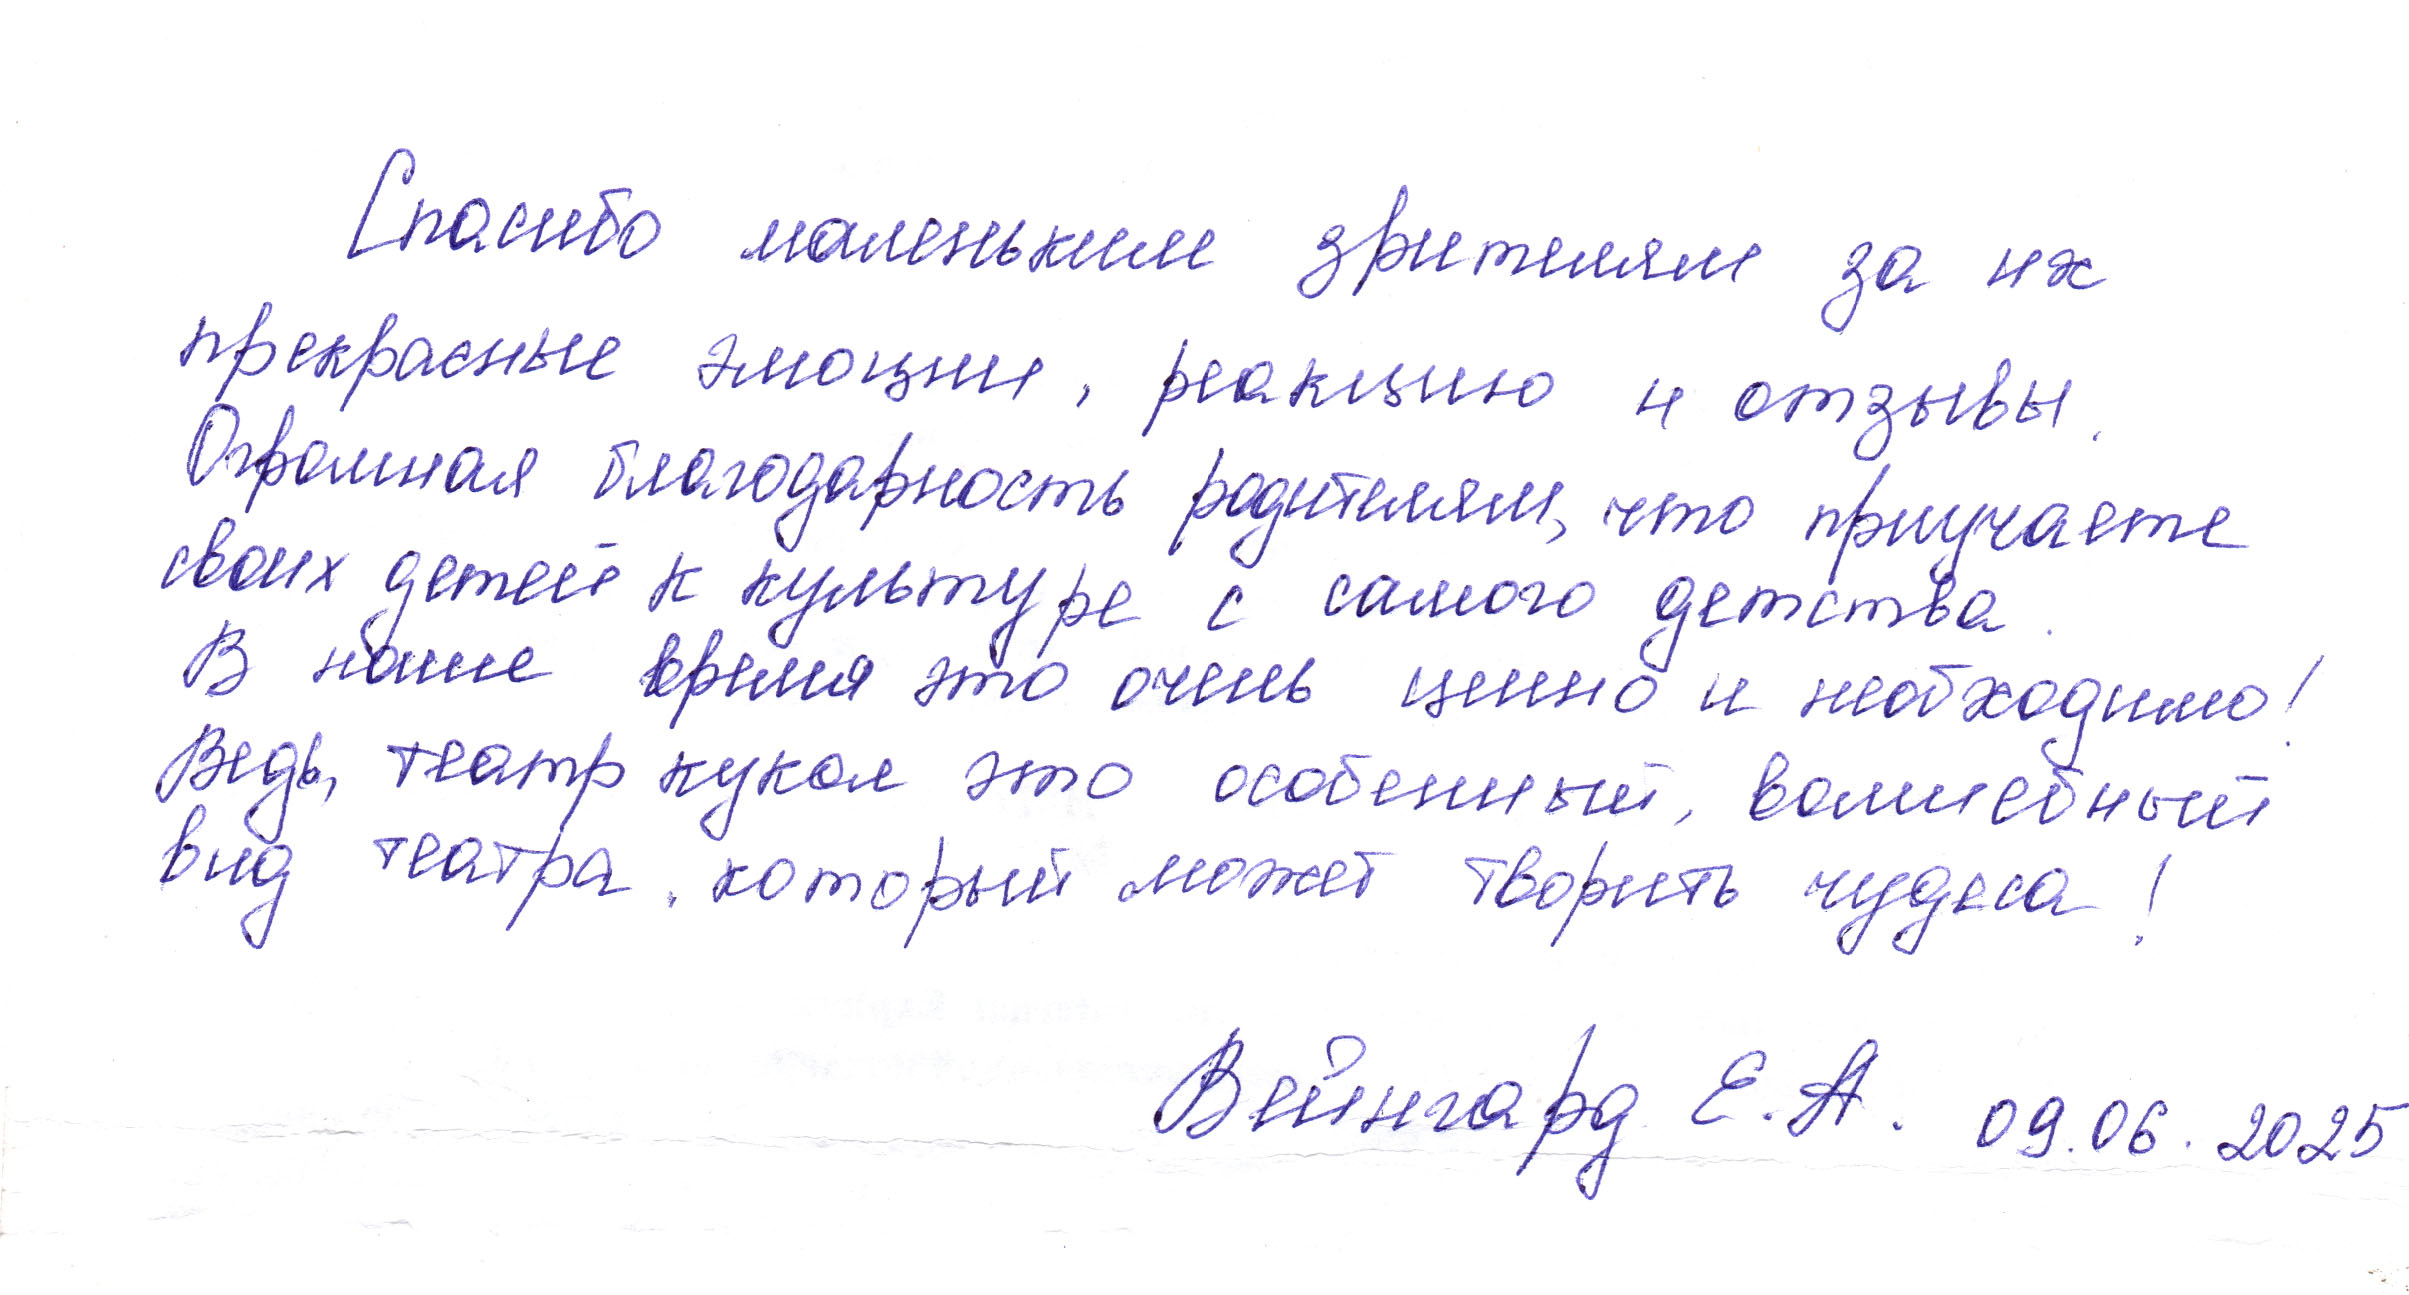 Спасибо маленьким зрителям за их
прекрасные эмоции, реакцию и отзывы.
Огромная благодарность родителям, что приучаете
своих детей к культуре с самого детства.
В наше время это очень ценно и необходимо!
Ведь, театр кукол это особенный, волшебный
вид театра, который может творить чудеса!
Вейнгард Е.А. 09.06.2025